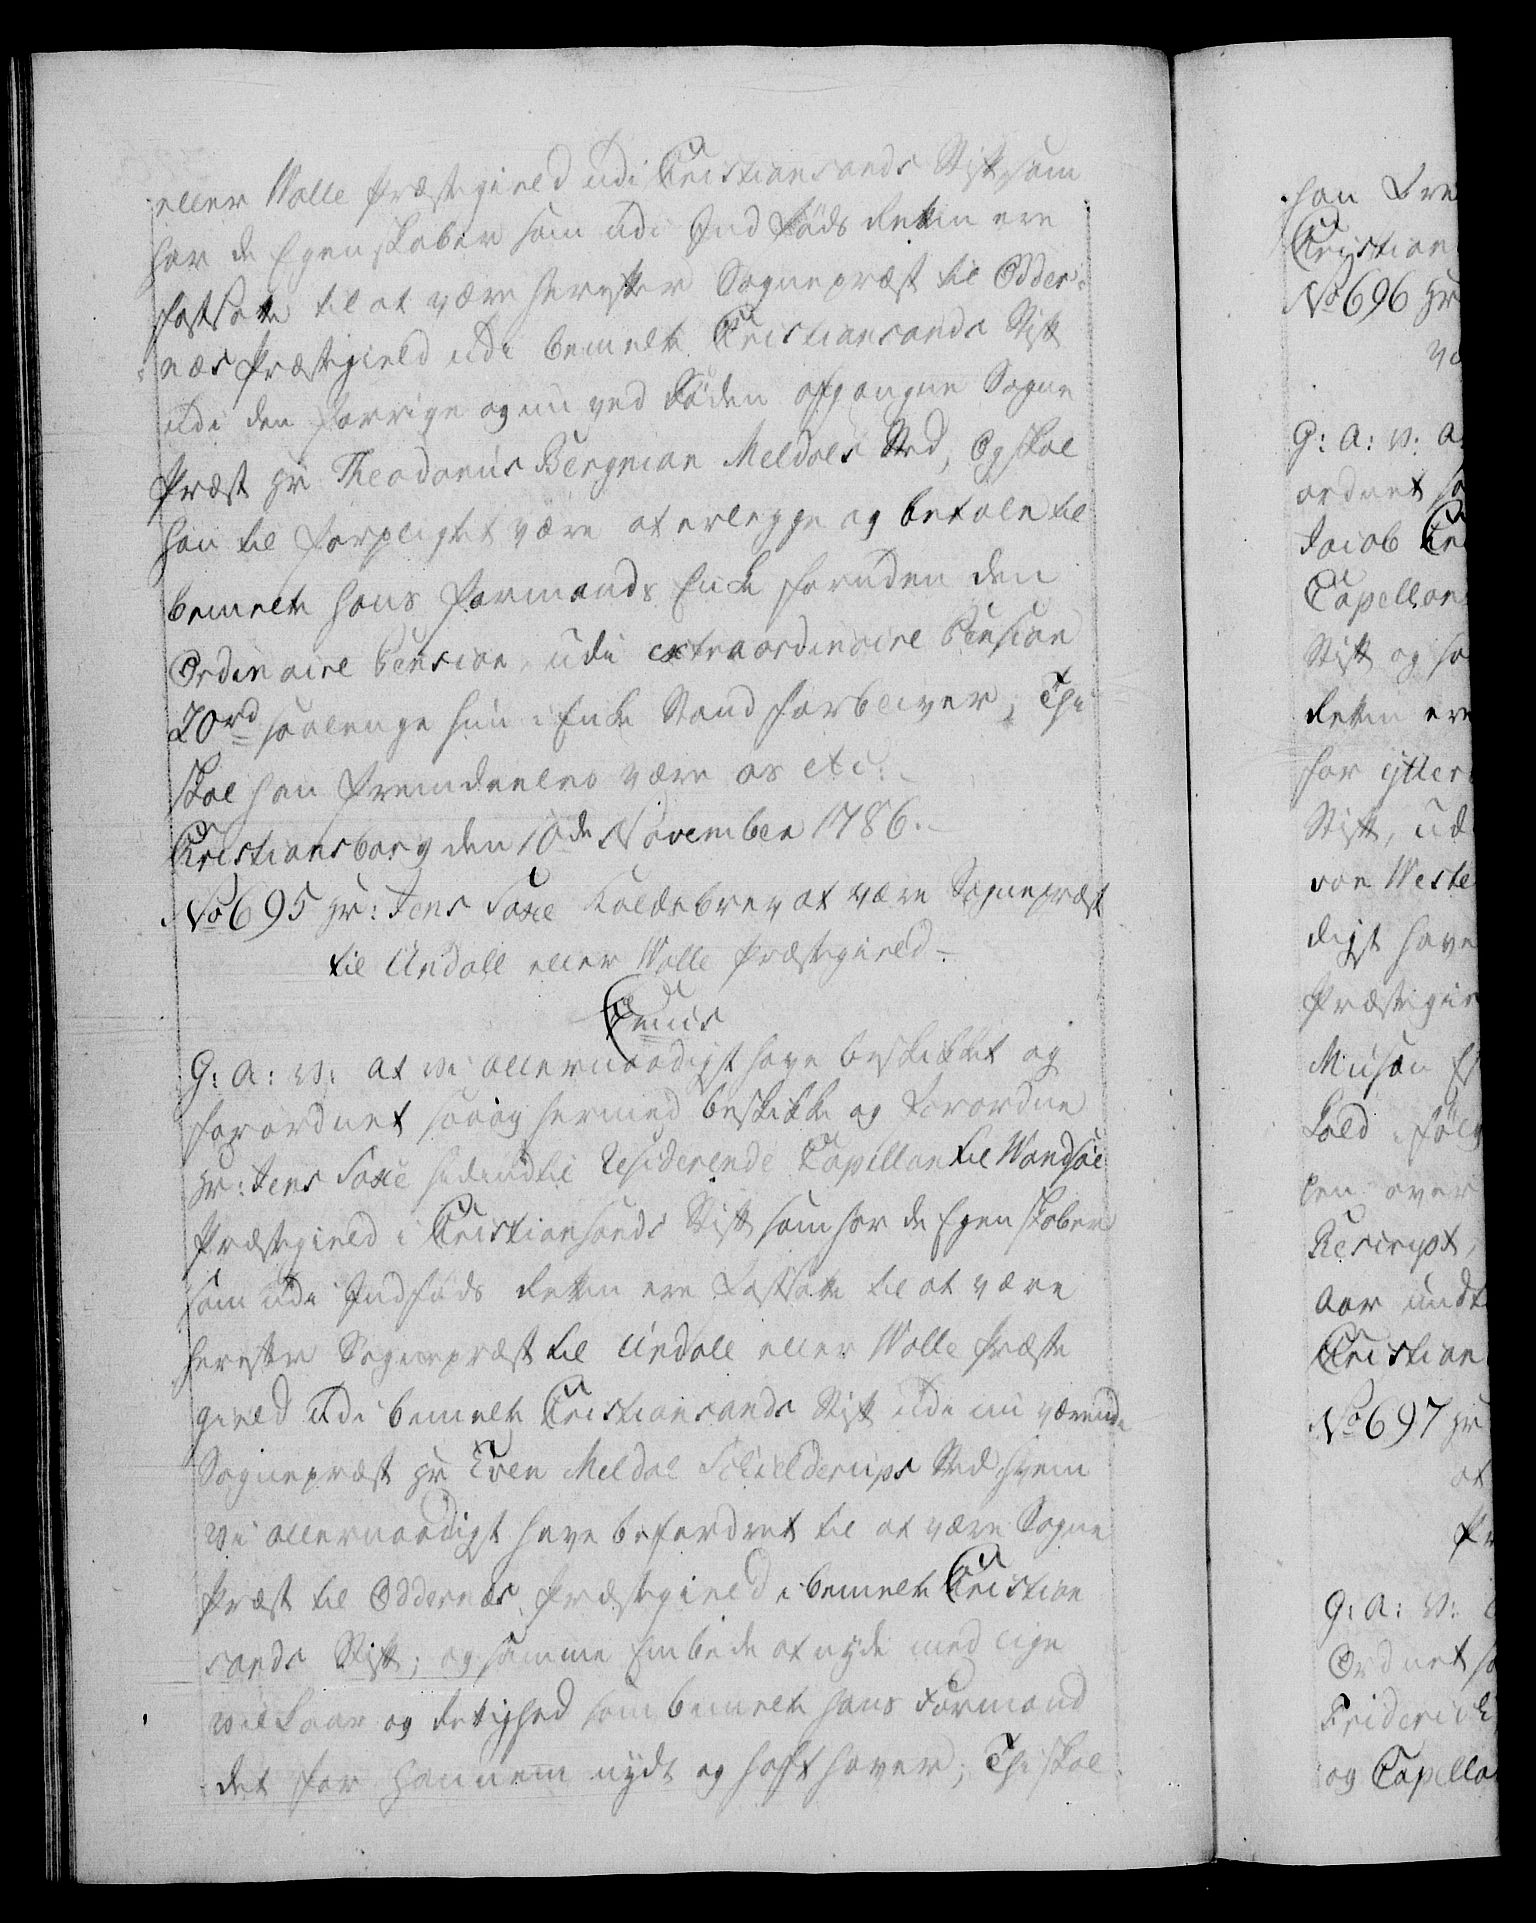 eller Walle Præstegield udi Christiansands Stift som
har de Egenskaber som udi Ind Føds Retten ere
fastsatte til at være herefter Sognepræst til Odder-
næs Præstegield udi bemelte Christiansands Stift
udi den forrige og nu ved Døden afgangne Sogne
Præst Hr Theodorus Bergman Meldals Sted, Og skal
han til forpligtet være at erlegge og betale til
bemelte hans Formands Enke foruden den
Ordinaire Pension, udi extraordinaire Pension
20rd saalenge hun i Enke Stand forbliver; Thi
skal han fremdeeles være os etc:
Christiansborg den 10de November 1786.
No 695 Hr: Jens Saxe Kaldebrev at være Sognepræst
til Undall eller Walle Præstegield
G: A: V: At vi allernaadigst have beskikket og
forordnet saa og hermed beskikke og Forordne
Hr: Jens Saxe hidindtil Residerende Capellan til Wandsøe
Præstegield i Christiansands Stift som har de Egenskaber
som udi Indføds Retten ere Fastsatte til at være
herefter Sognepræst til Undall eller Walle Præste
gield udi bemelte Christiansands Stift udi nu værende
Sognepræst Hr Even Meldal Schielderups Sted hvem
vi allernaadigst have befordret til at være Sogne
Præst til Oddernæs Præstegield i bemelte Christian
sands Stift; og samme Embede at nyde med lige
vilkaar og Rettighed som bemelte hans Formand
det for hannem nydt og haft haver; Thi skal
han Fre
Christian
No 696 Hr
G: A: V: A
ordnet sa
Jacob
Capellan
Stift og ha
Retten ere
for ytter
Stift, ud
von Weste
digst have
Præstegie
Kald i føl
pen over
Rescript,
Aar indt
Christian
No 697 Hr
at
Pr
G: A: V:
Ordnet sa
Friderich
og Capella